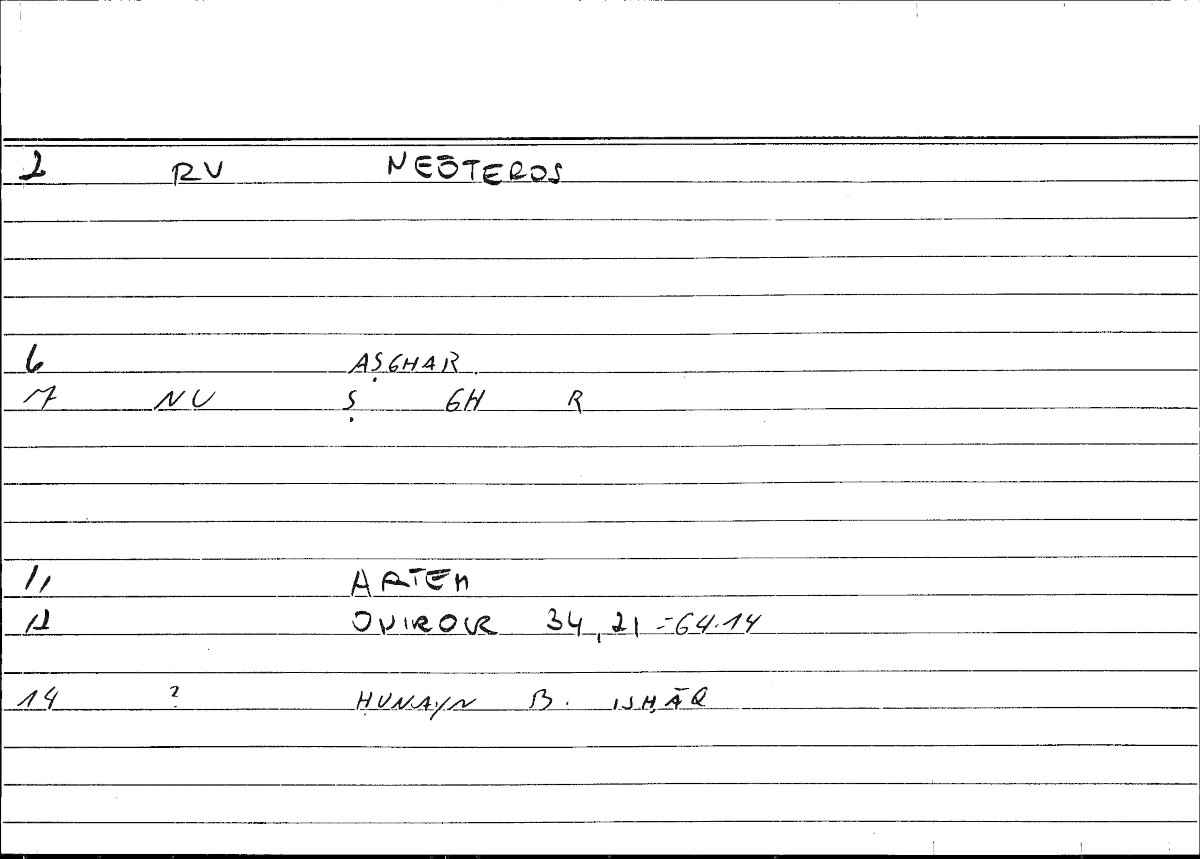 2 RV NEŌTEROS
6 AṢGHAR
7 NU Ṣ GH R
11 ARTEM
12 ONIROCR 34,21 =64.14
14 ? ḤUNAYN B. ISḤĀQ